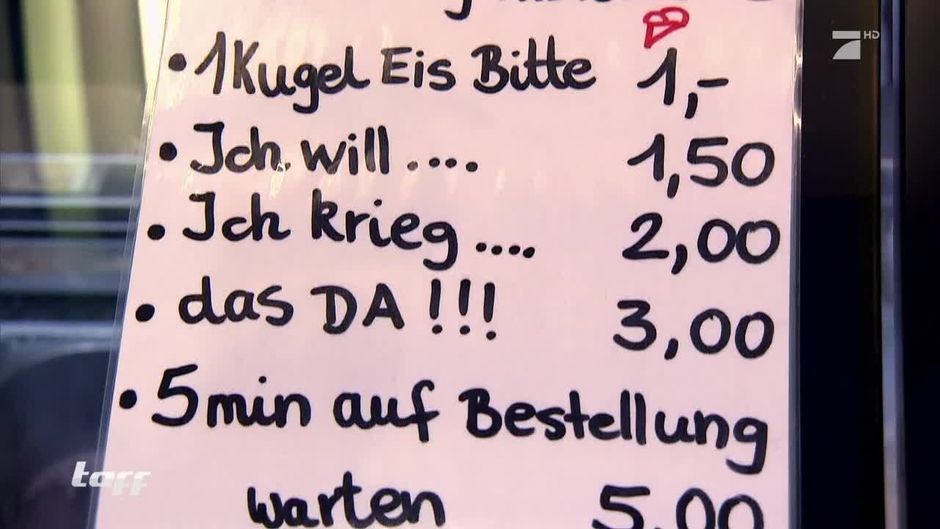 • 1 Kugel Eis Bitte 1,-
• Ich will.... 1,50
• Ich krieg.... 2,00
• das DA!!! 3,00
• 5min auf Bestellung
warten 5,00
taff
7 HD